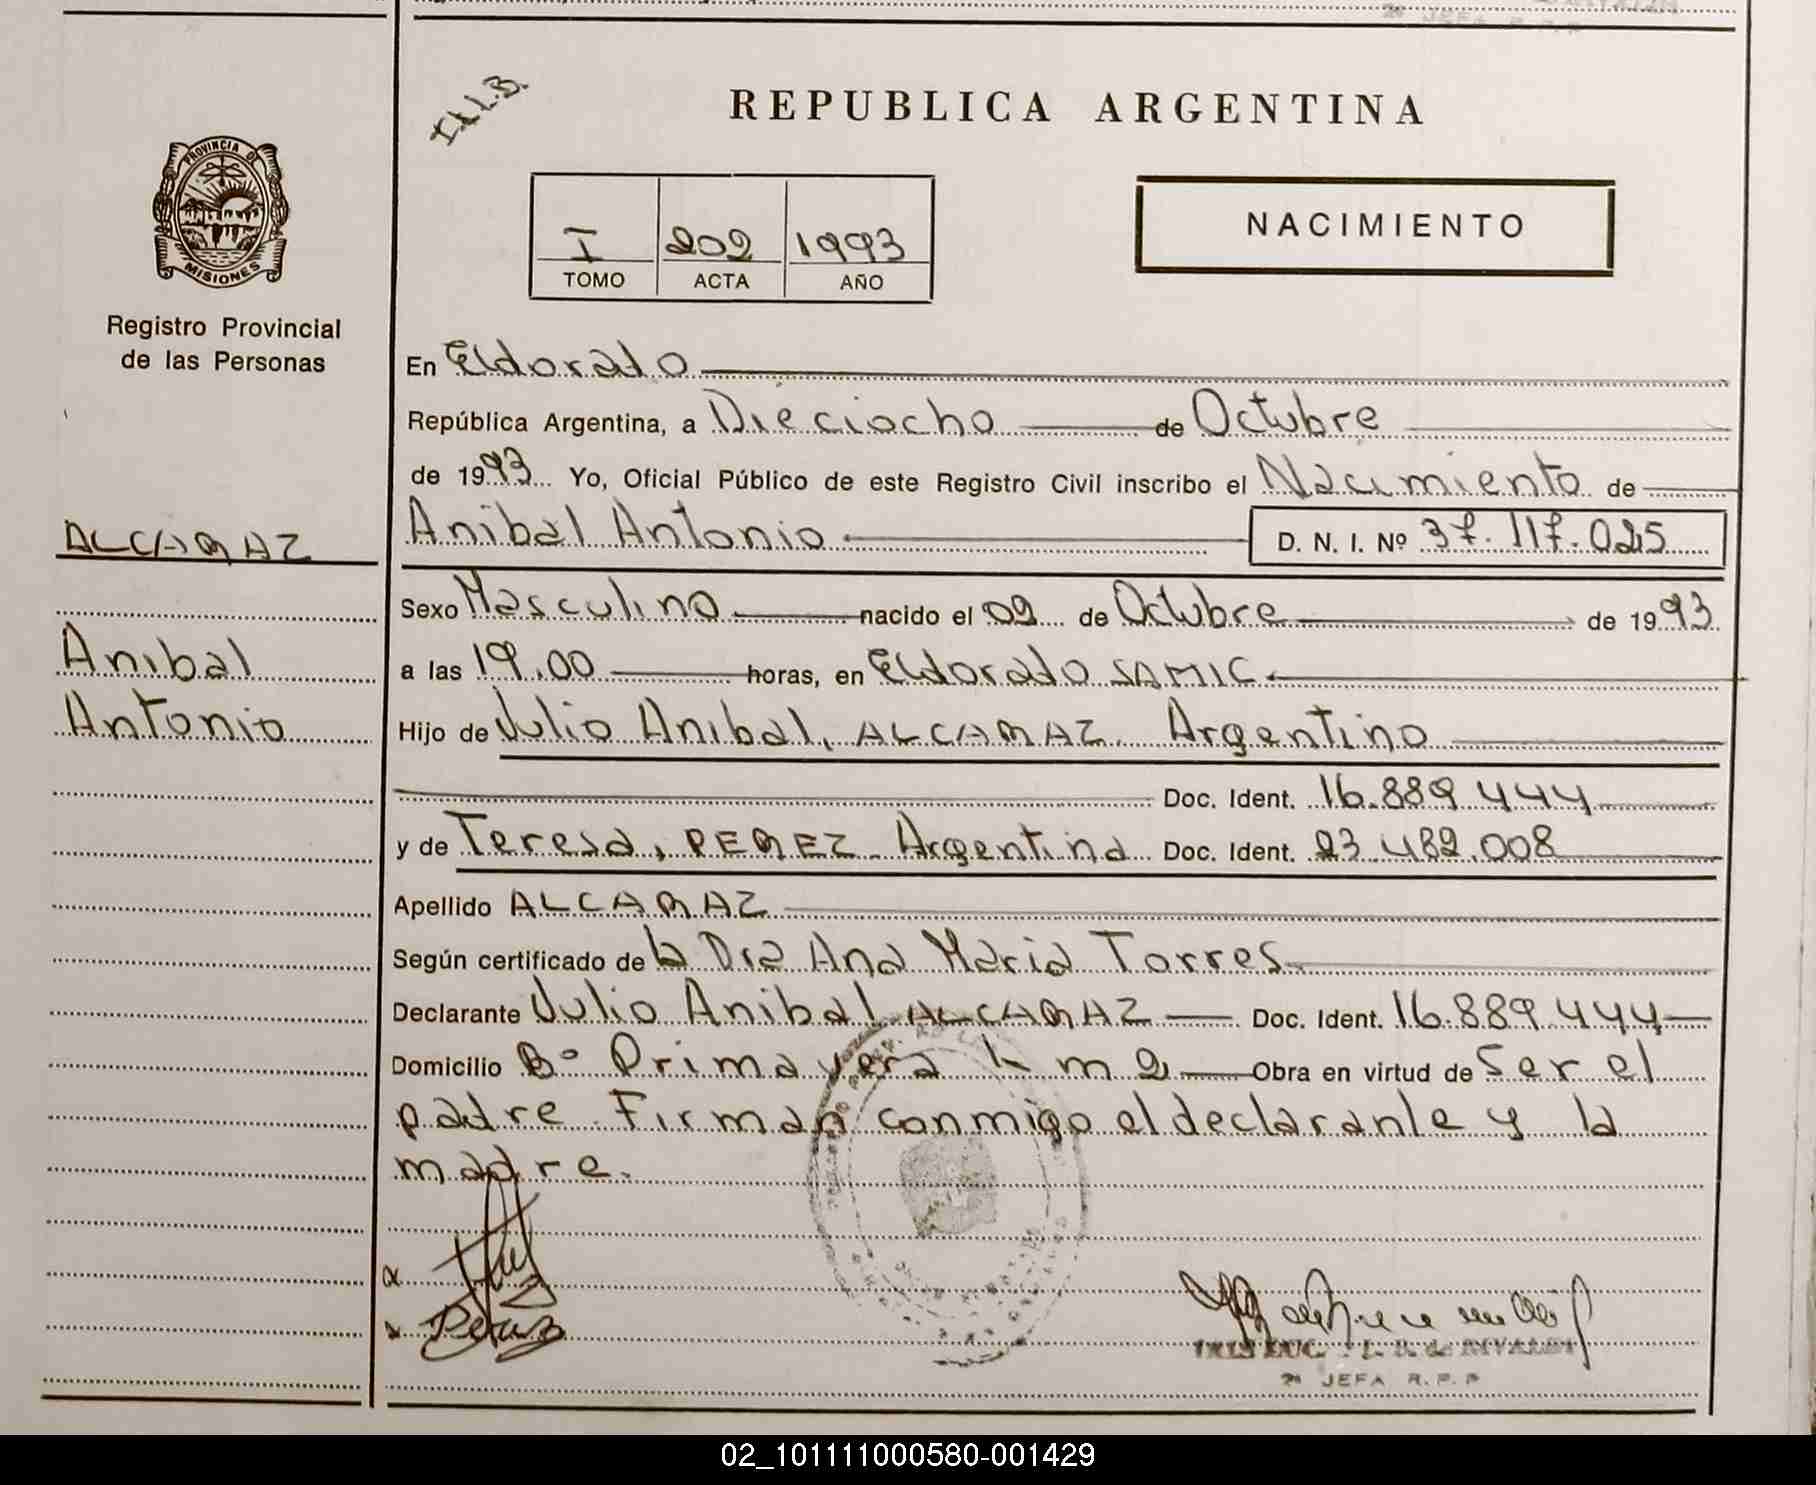 2ª JEFA R.P.P
I.L.L.B.
REPUBLICA ARGENTINA
PROVINCIA DE
MISIONES
NACIMIENTO
I 202 1993
TOMO ACTA AÑO
Registro Provincial
de las Personas
En Eldorado
República Argentina, a Dieciocho de Octubre
de 1993 Yo, Oficial Público de este Registro Civil inscribo el Nacimiento de
ALCARAZ
Anibal Antonio D. N. I. Nº 37.117.025
Sexo Masculino nacido el 09 de Octubre de 1993
Anibal
a las 19.00 horas, en Eldorado SAMIC.
Antonio
Hijo de Julio Anibal, ALCARAZ. Argentino
Doc. Ident. 16.889.444
y de Teresa, PEREZ. Argentina Doc. Ident. 23.482.008
Apellido ALCARAZ
Según certificado de la Dra Ana Maria Torres
Declarante Julio Anibal ALCARAZ Doc. Ident. 16.889.444
Domicilio Bº Primavera km 2 Obra en virtud de Ser el
padre. Firman conmigo el declarante y la
madre.
Perez
L. B. de RIVALDI
2ª JEFA R.P.P
02_101111000580-001429